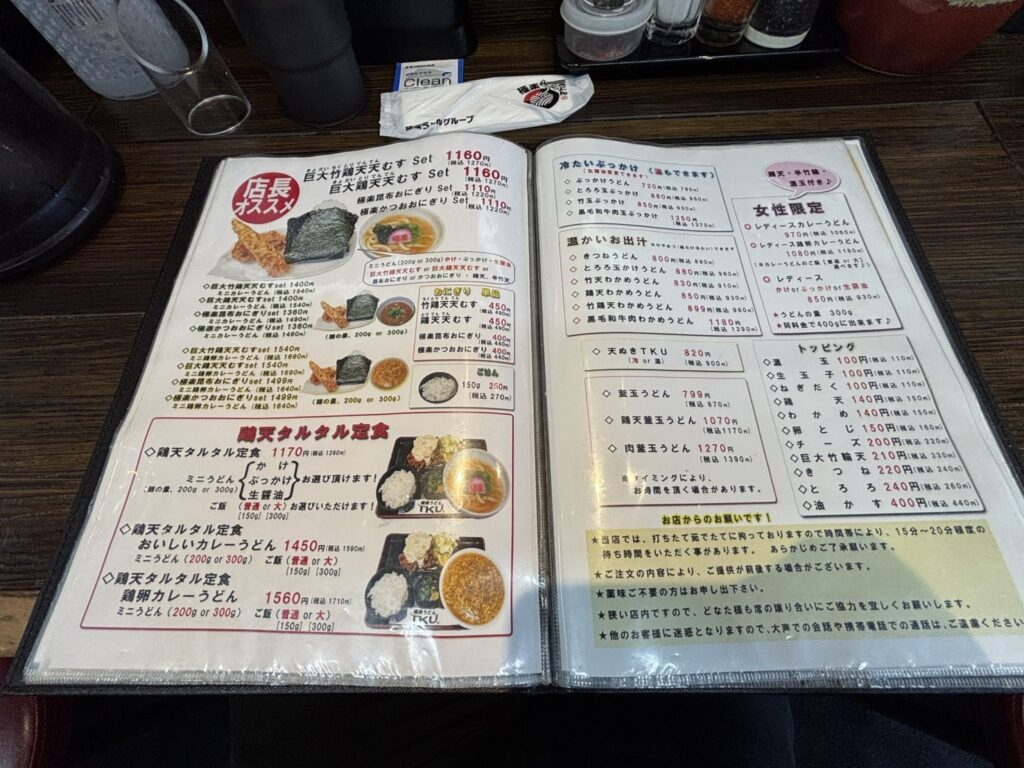 Clean
極楽
店長
オススメ
きょだいちくとりてんてん
巨大竹鶏天天むす Set 1160円
(税込 1270円)
きょだいとりてんてん
巨大鶏天天むす Set 1160円
(税込 1270円)
極楽昆布おにぎり Set 1110円
(税込 1220円)
極楽かつおおにぎり Set 1110円
(税込 1220円)
ミニうどん(200g or 300g) かけ・ぶっかけ・生醤油
巨大竹鶏天天むす or 巨大鶏天天むす or
昆布おにぎり or かつおおにぎり ・ 鶏天、半竹天
◇巨大竹鶏天天むすset 1400円
ミニカレーうどん (税込 1540円)
◇巨大鶏天天むすset 1400円
ミニカレーうどん (税込 1540円)
◇極楽昆布おにぎりset 1360円
ミニカレーうどん (税込 1490円)
◇極楽かつおおにぎりset 1360円
ミニカレーうどん (税込 1490円)
(麺の量、200g or 300g)
◇巨大竹鶏天天むすset 1540円
ミニ鶏卵カレーうどん (税込 1690円)
◇巨大鶏天天むすset 1540円
ミニ鶏卵カレーうどん (税込 1690円)
◇極楽昆布おにぎりset 1499円
ミニ鶏卵カレーうどん (税込 1640円)
◇極楽かつおおにぎりset 1499円
ミニ鶏卵カレーうどん (税込 1640円)
(麺の量、200g or 300g)
おにぎり 単品
竹鶏天天むす 450円
(税込 490円)
鶏天天むす 450円
(税込 490円)
極楽昆布おにぎり 400円
(税込 440円)
極楽かつおおにぎり 400円
(税込 440円)
ごはん
150g 250円
(税込 270円)
鶏天タルタル定食
◇鶏天タルタル定食 1170円 (税込 1280円)
ミニうどん
(麺の量、200g or 300g)
かけ
ぶっかけ
生醤油
お選び頂けます!
ご飯 (普通 or 大) お選びいただけます!
[150g] [300g]
TKU.
◇鶏天タルタル定食
おいしいカレーうどん 1450円 (税込 1590円)
ミニうどん (200g or 300g) ご飯 (普通 or 大)
[150g] [300g]
◇鶏天タルタル定食
鶏卵カレーうどん 1560円 (税込 1710円)
ミニうどん (200g or 300g) ご飯 (普通 or 大)
[150g] [300g]
TKU.
冷たいぶっかけ (温もできます)
(生醤油変更できます)
◇ ぶっかけうどん 720円(税込 790円)
◇ とろろ玉ぶっかけ 880円(税込 960円)
◇ 竹玉ぶっかけ 850円(税込 930円)
◇ 黒毛和牛肉玉ぶっかけ 1250円
(税込 1370円)
温かいお出汁
◇ きつねうどん 800円(税込 880円)
◇ とろろ玉かけうどん 880円(税込 960円)
◇ 竹天わかめうどん 830円(税込 910円)
◇ 鶏天わかめうどん 850円(税込 930円)
◇ 竹鶏天わかめうどん 899円(税込 980円)
◇ 黒毛和牛肉わかめうどん 1180円
(税込 1290円)
◇ 天ぬきTKU 820円
(冷 or 温) (税込 900円)
◇ 釜玉うどん 799円
(税込 870円)
◇ 鶏天釜玉うどん 1070円
(税込1170円)
◇ 肉釜玉うどん 1270円
(税込 1390円)
※タイミングにより、
お時間を頂く場合があります。
鶏天・半竹輪・
温玉付き♪
女性限定
レディースカレーうどん
970円(税込 1060円)
レディース鶏卵カレーうどん
1080円(税込 1180円)
レディース
かけorぶっかけor生醤油
850円(税込 930円)
★うどんの量 300g
★同料金で400gに出来ます♪
トッピング
◇温玉 100円(税込 110円)
◇生玉子 100円(税込 110円)
◇ねぎだく 100円(税込 110円)
◇鶏天 140円(税込 150円)
◇わかめ 140円(税込 150円)
◇卵とじ 150円(税込 160円)
◇チーズ 200円(税込 220円)
◇巨大竹輪天 210円(税込 230円)
◇きつね 220円(税込 240円)
◇とろろ 240円(税込 260円)
◇油かす 400円(税込 440円)
お店からのお願いです!
★当店では、打ちたて茹でたてに拘っておりますので時間帯により、15分～20分程度の
待ち時間をいただく事があります。 あらかじめご了承願います。
★ご注文の内容により、ご提供が前後する場合がございます。
★薬味ご不要の方はお申し出下さい。
★狭い店内ですので、どなた様も席の譲り合いにご協力を宜しくお願いします。
★他のお客様に迷惑となりますので、大声での会話や携帯電話での通話は、ご遠慮ください